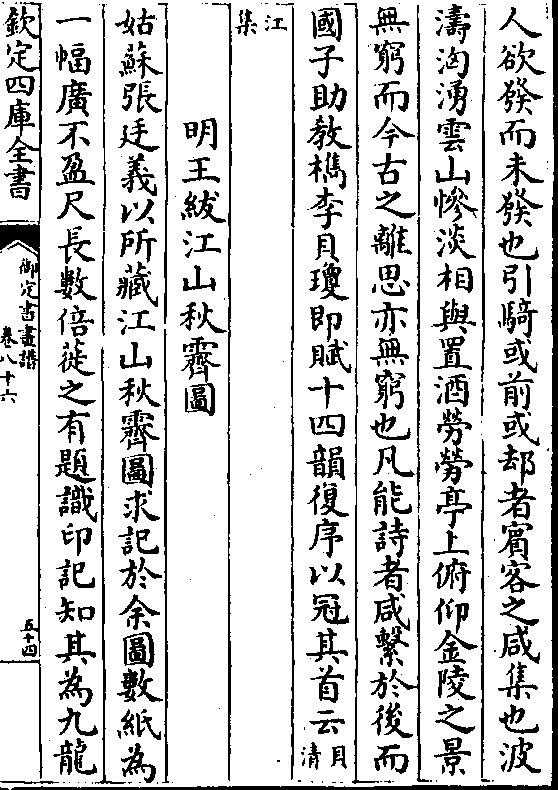 人欲發而未發也引騎或前或却者賓客之咸集也波
濤洶湧雲山慘淡相與置酒勞勞亭上俯仰金陵之景
無窮而今古之離思亦無窮也凡能詩者咸繫於後而
國子助教檇李貝瓊即賦十四韻復序以冠其首云貝清
江集
明王紱江山秋霽圖
姑蘇張廷義以所藏江山秋霽圖求記於余圖數紙為
一幅廣不盈尺長數倍蓰之有題識印記知其為九龍
欽定四庫全書
御定書畫譜
卷八十六
五十四